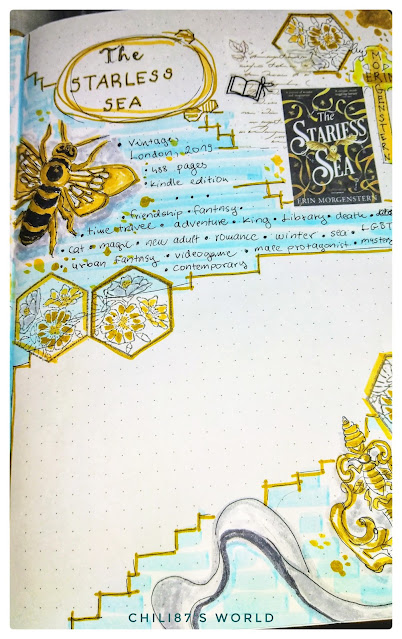 The
STARLESS
SEA
• Vintage,
London, 2019
• 488 pages
• Kindle edition
• friendship • fantasy •
• time travel • adventure • king • library • death •
• cat • magic • new adult • romance • winter • sea • LGBT
urban fantasy • videogame • male protagonist • mystery
• contemporary
ERIN
MORGENSTERN
The
STARLESS
SEA
ERIN MORGENSTERN
CHILI87'S WORLD